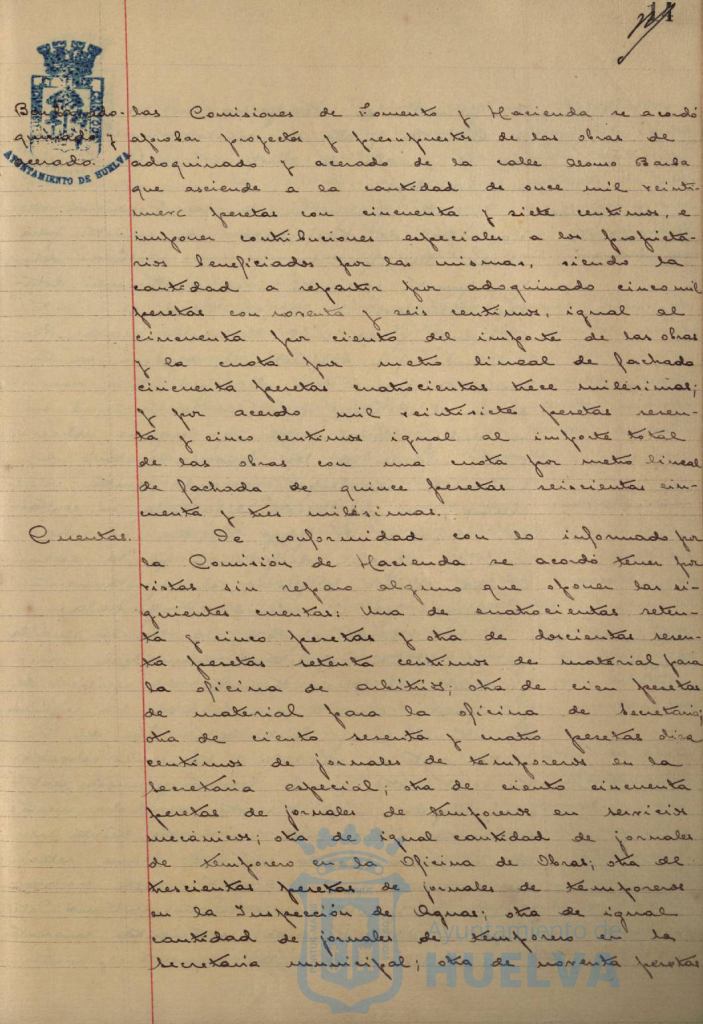 AYUNTAMIENTO DE HUELVA
las Comisiones de Fomento y Hacienda se acordó
aprobar proyectos y presupuestos de las obras de
adoquinado y acerado de la calle Alonso Barba
que asciende a la cantidad de once mil veinti-
nueve pesetas con cincuenta y siete centimos, e
imponer contribuciones especiales a los propieta-
rios beneficiados por las mismas, siendo la
cantidad a repartir por adoquinado cinco mil
pesetas con noventa y seis centimos, igual al
cincuenta por ciento del importe de las obras
y la cuota por metro lineal de fachada
cincuenta pesetas cuatrocientas trece milésimas;
y por acerado mil veintisiete pesetas seten-
ta y cinco centimos igual al importe total
de las obras con una cuota por metro lineal
de fachada de quince pesetas seiscientas cin-
cuenta y tres milésimas.
Cuentas. De conformidad con lo informado por
la Comisión de Hacienda se acordó tener por
vistas sin reparo alguno que oponer las si-
guientes cuentas: Una de cuatrocientas seten-
ta y cinco pesetas y otra de doscientas sesen-
ta pesetas setenta centimos de material para
la oficina de arbitrios; otra de cien pesetas
de material para la oficina de Secretaria;
otra de ciento sesenta y cuatro pesetas diez
centimos de jornales de temporeros en la
Secretaria especial; otra de ciento cincuenta
pesetas de jornales de temporeros en servicios
mecánicos; otra de igual cantidad de jornales
de temporero en la Oficina de Obras; otra de
trescientas pesetas de jornales de temporeros
en la Inspección de Aguas; otra de igual
cantidad de jornales de temporero en la
Secretaria municipal; otra de noventa pesetas
Ayuntamiento de
HUELVA